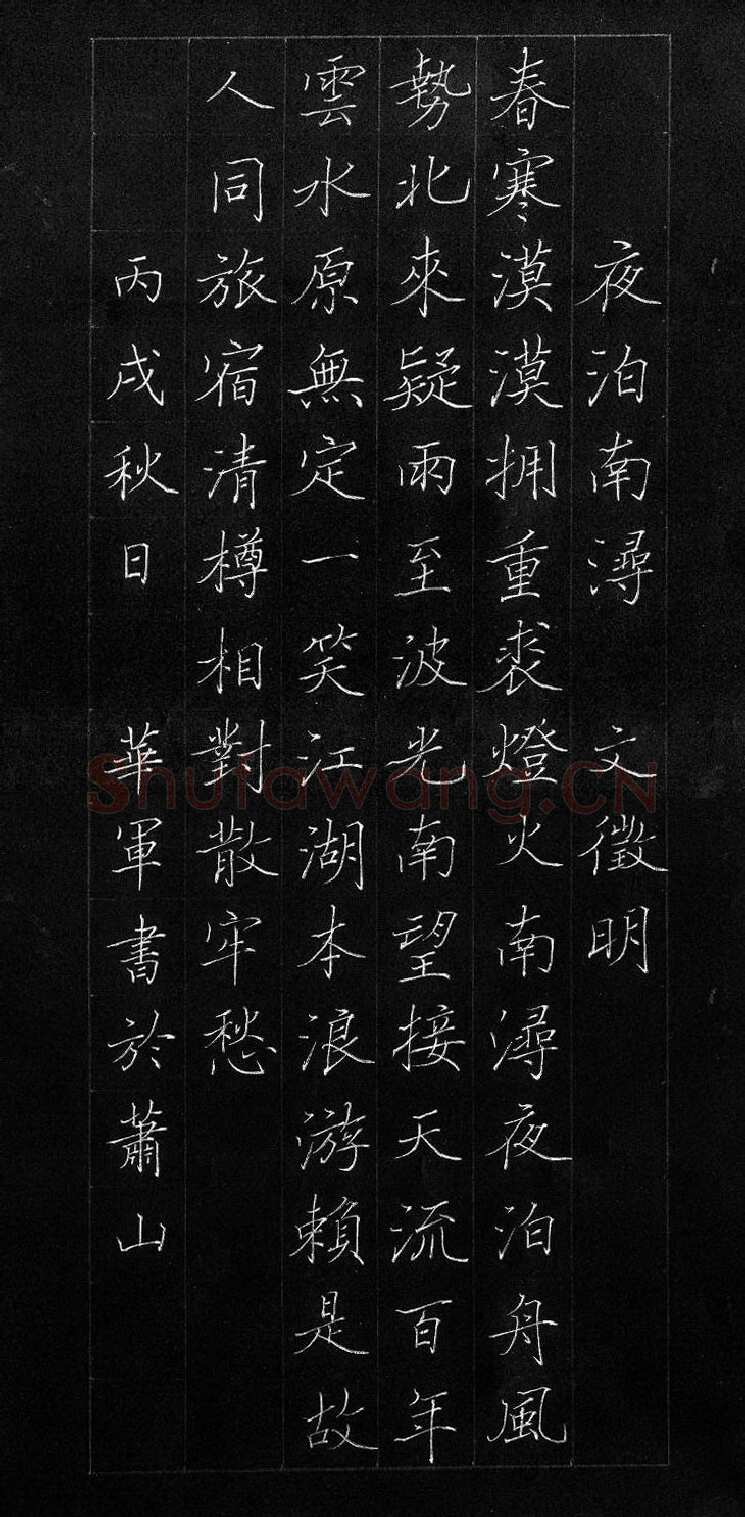 夜泊南潯 文徵明
春寒漠漠拥重裘燈火南潯夜泊舟風
勢北來疑雨至波光南望接天流百年
雲水原無定一笑江湖本浪游賴是故
人同旅宿清樽相對散牢愁
丙戌秋日 華軍書於蕭山
Shufawang.CN